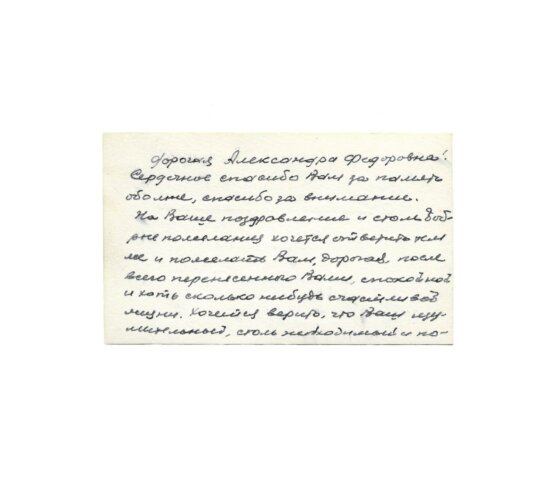 Дорогая Александра Федоровна!
Сердечное спасибо Вам за память
обо мне, спасибо за внимание.
На Ваше поздравление и столь доб-
рые пожелания хочется ответить тем
же и пожелать Вам, дорогая, после
всего перенесенного Вами, спокойной
и хоть сколько нибудь счастливой
жизни. Хочется верить, что Ваш изу-
мительный, столь необходимый и по-